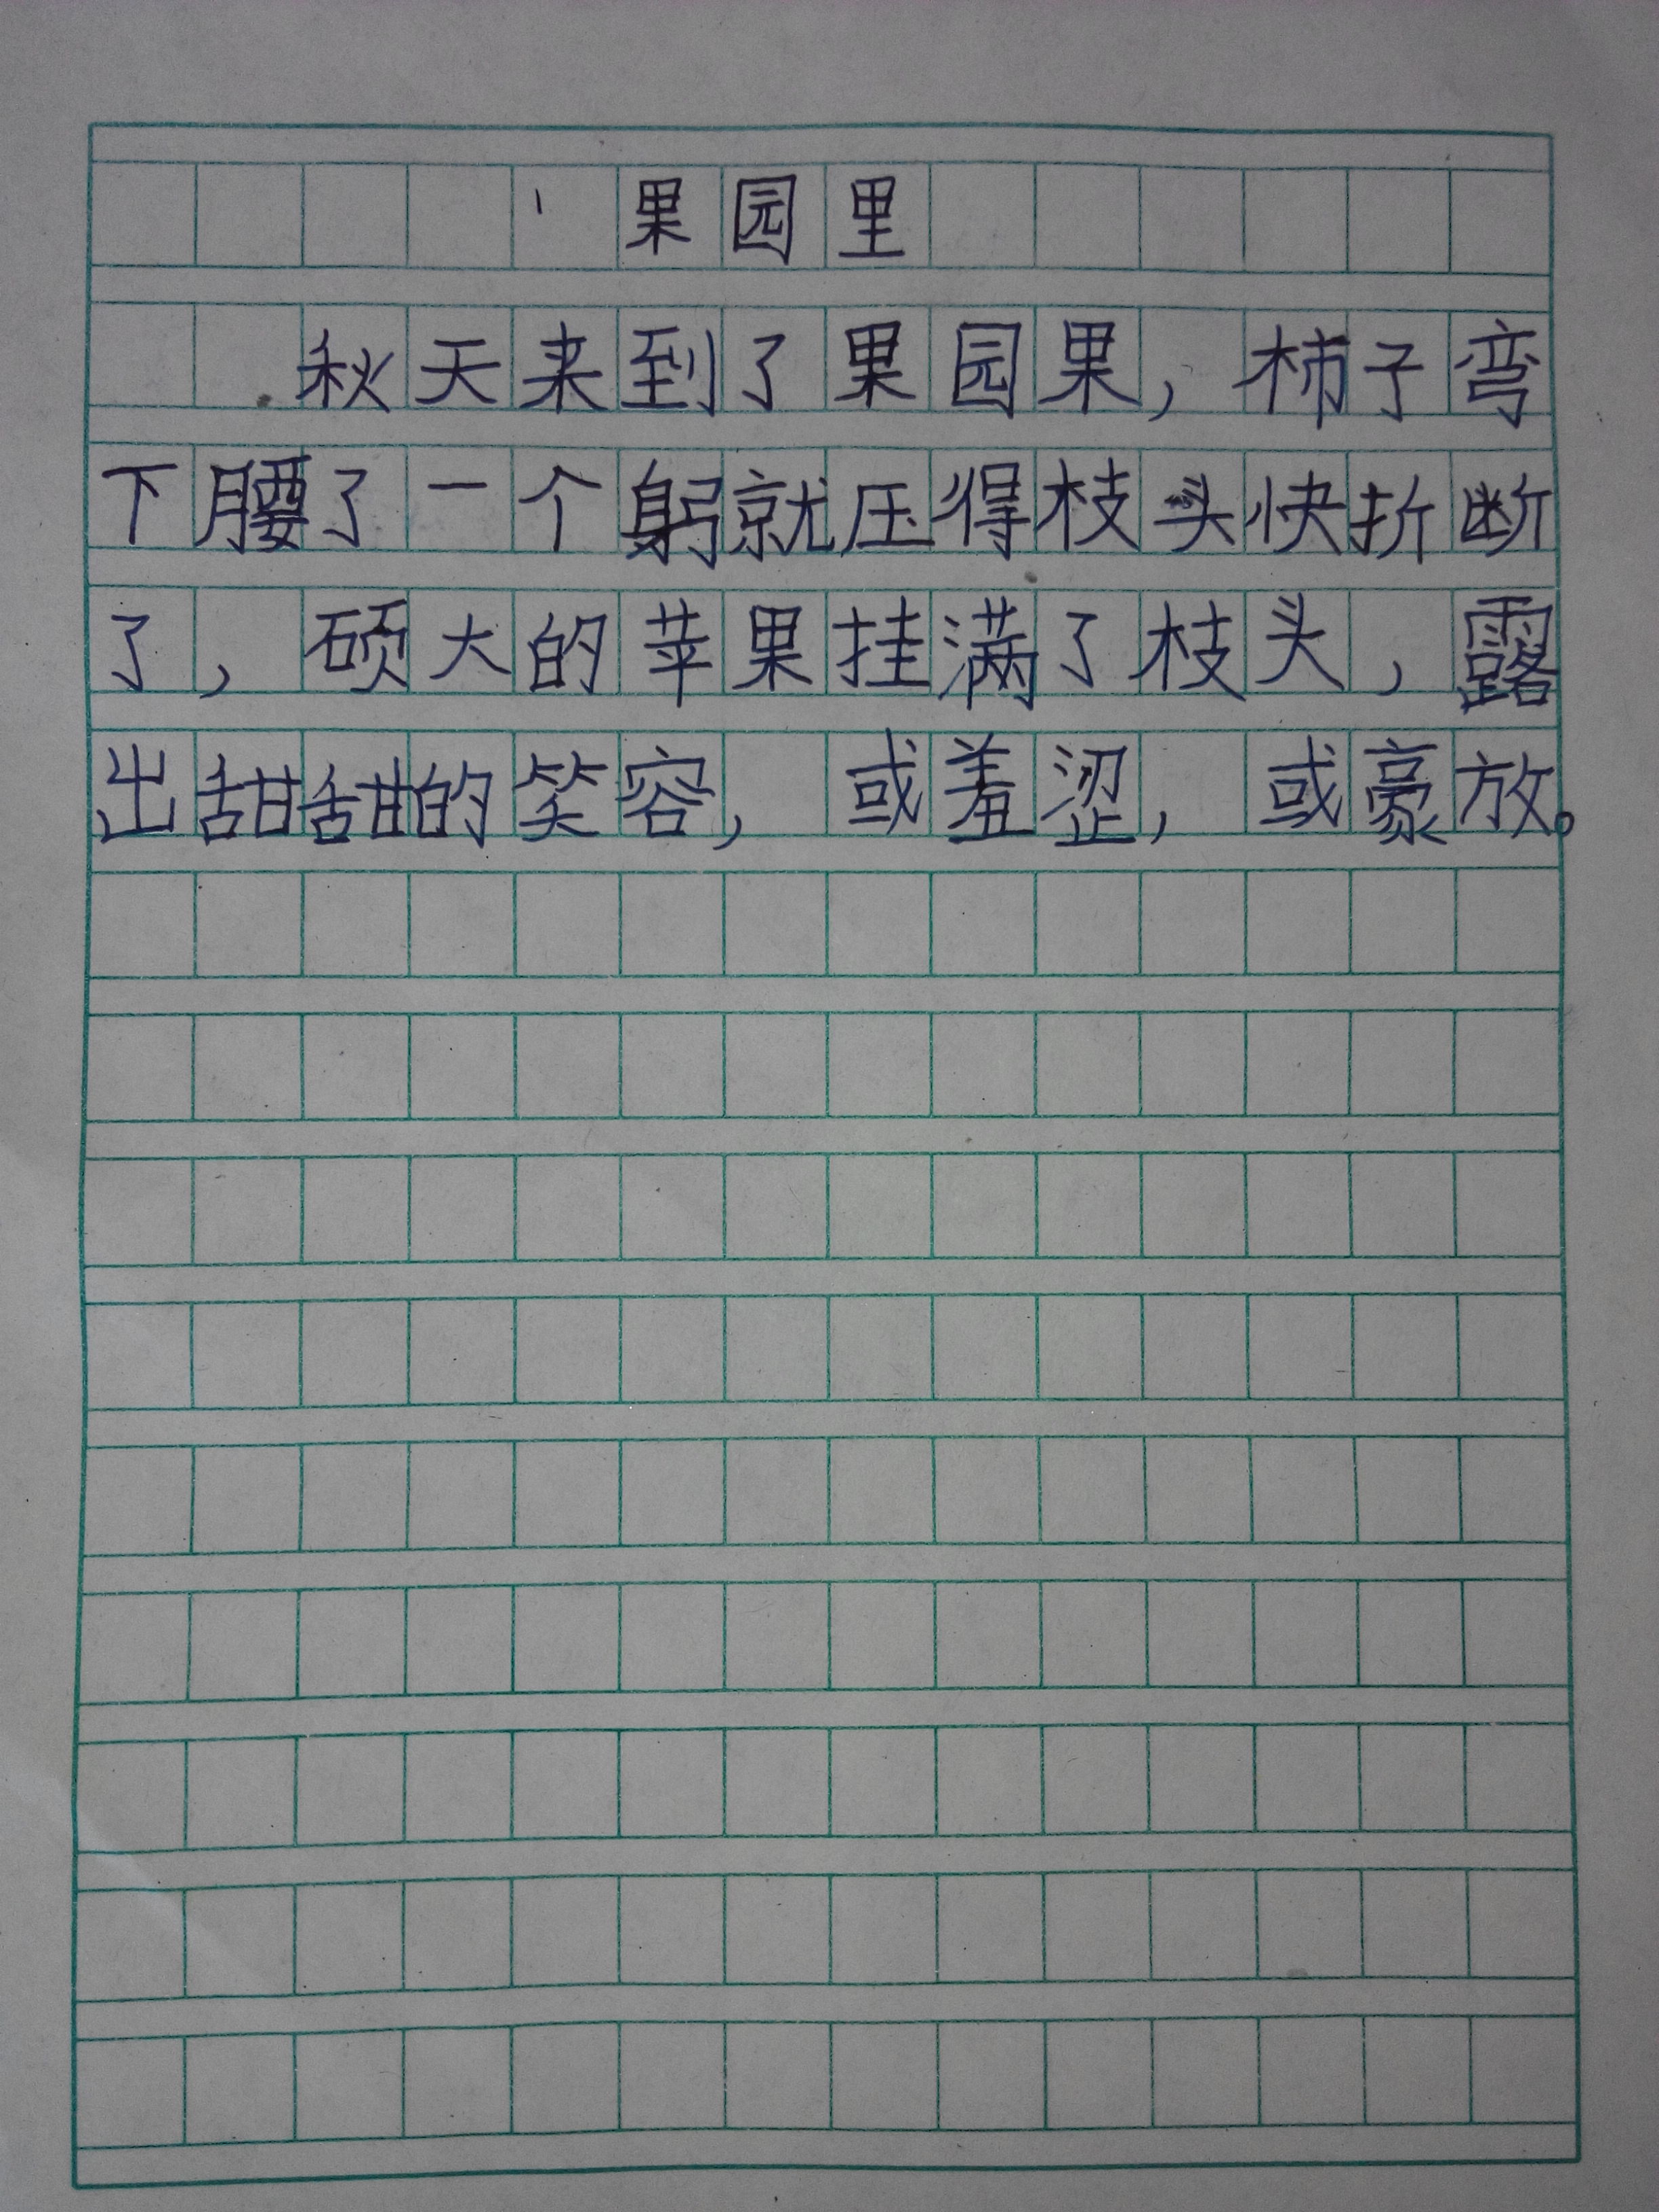 果园里
秋天来到了果园果，柿子弯
下腰了一个躬就压得枝头快折断
了，硕大的苹果挂满了枝头，露
出甜甜的笑容，或羞涩，或豪放。